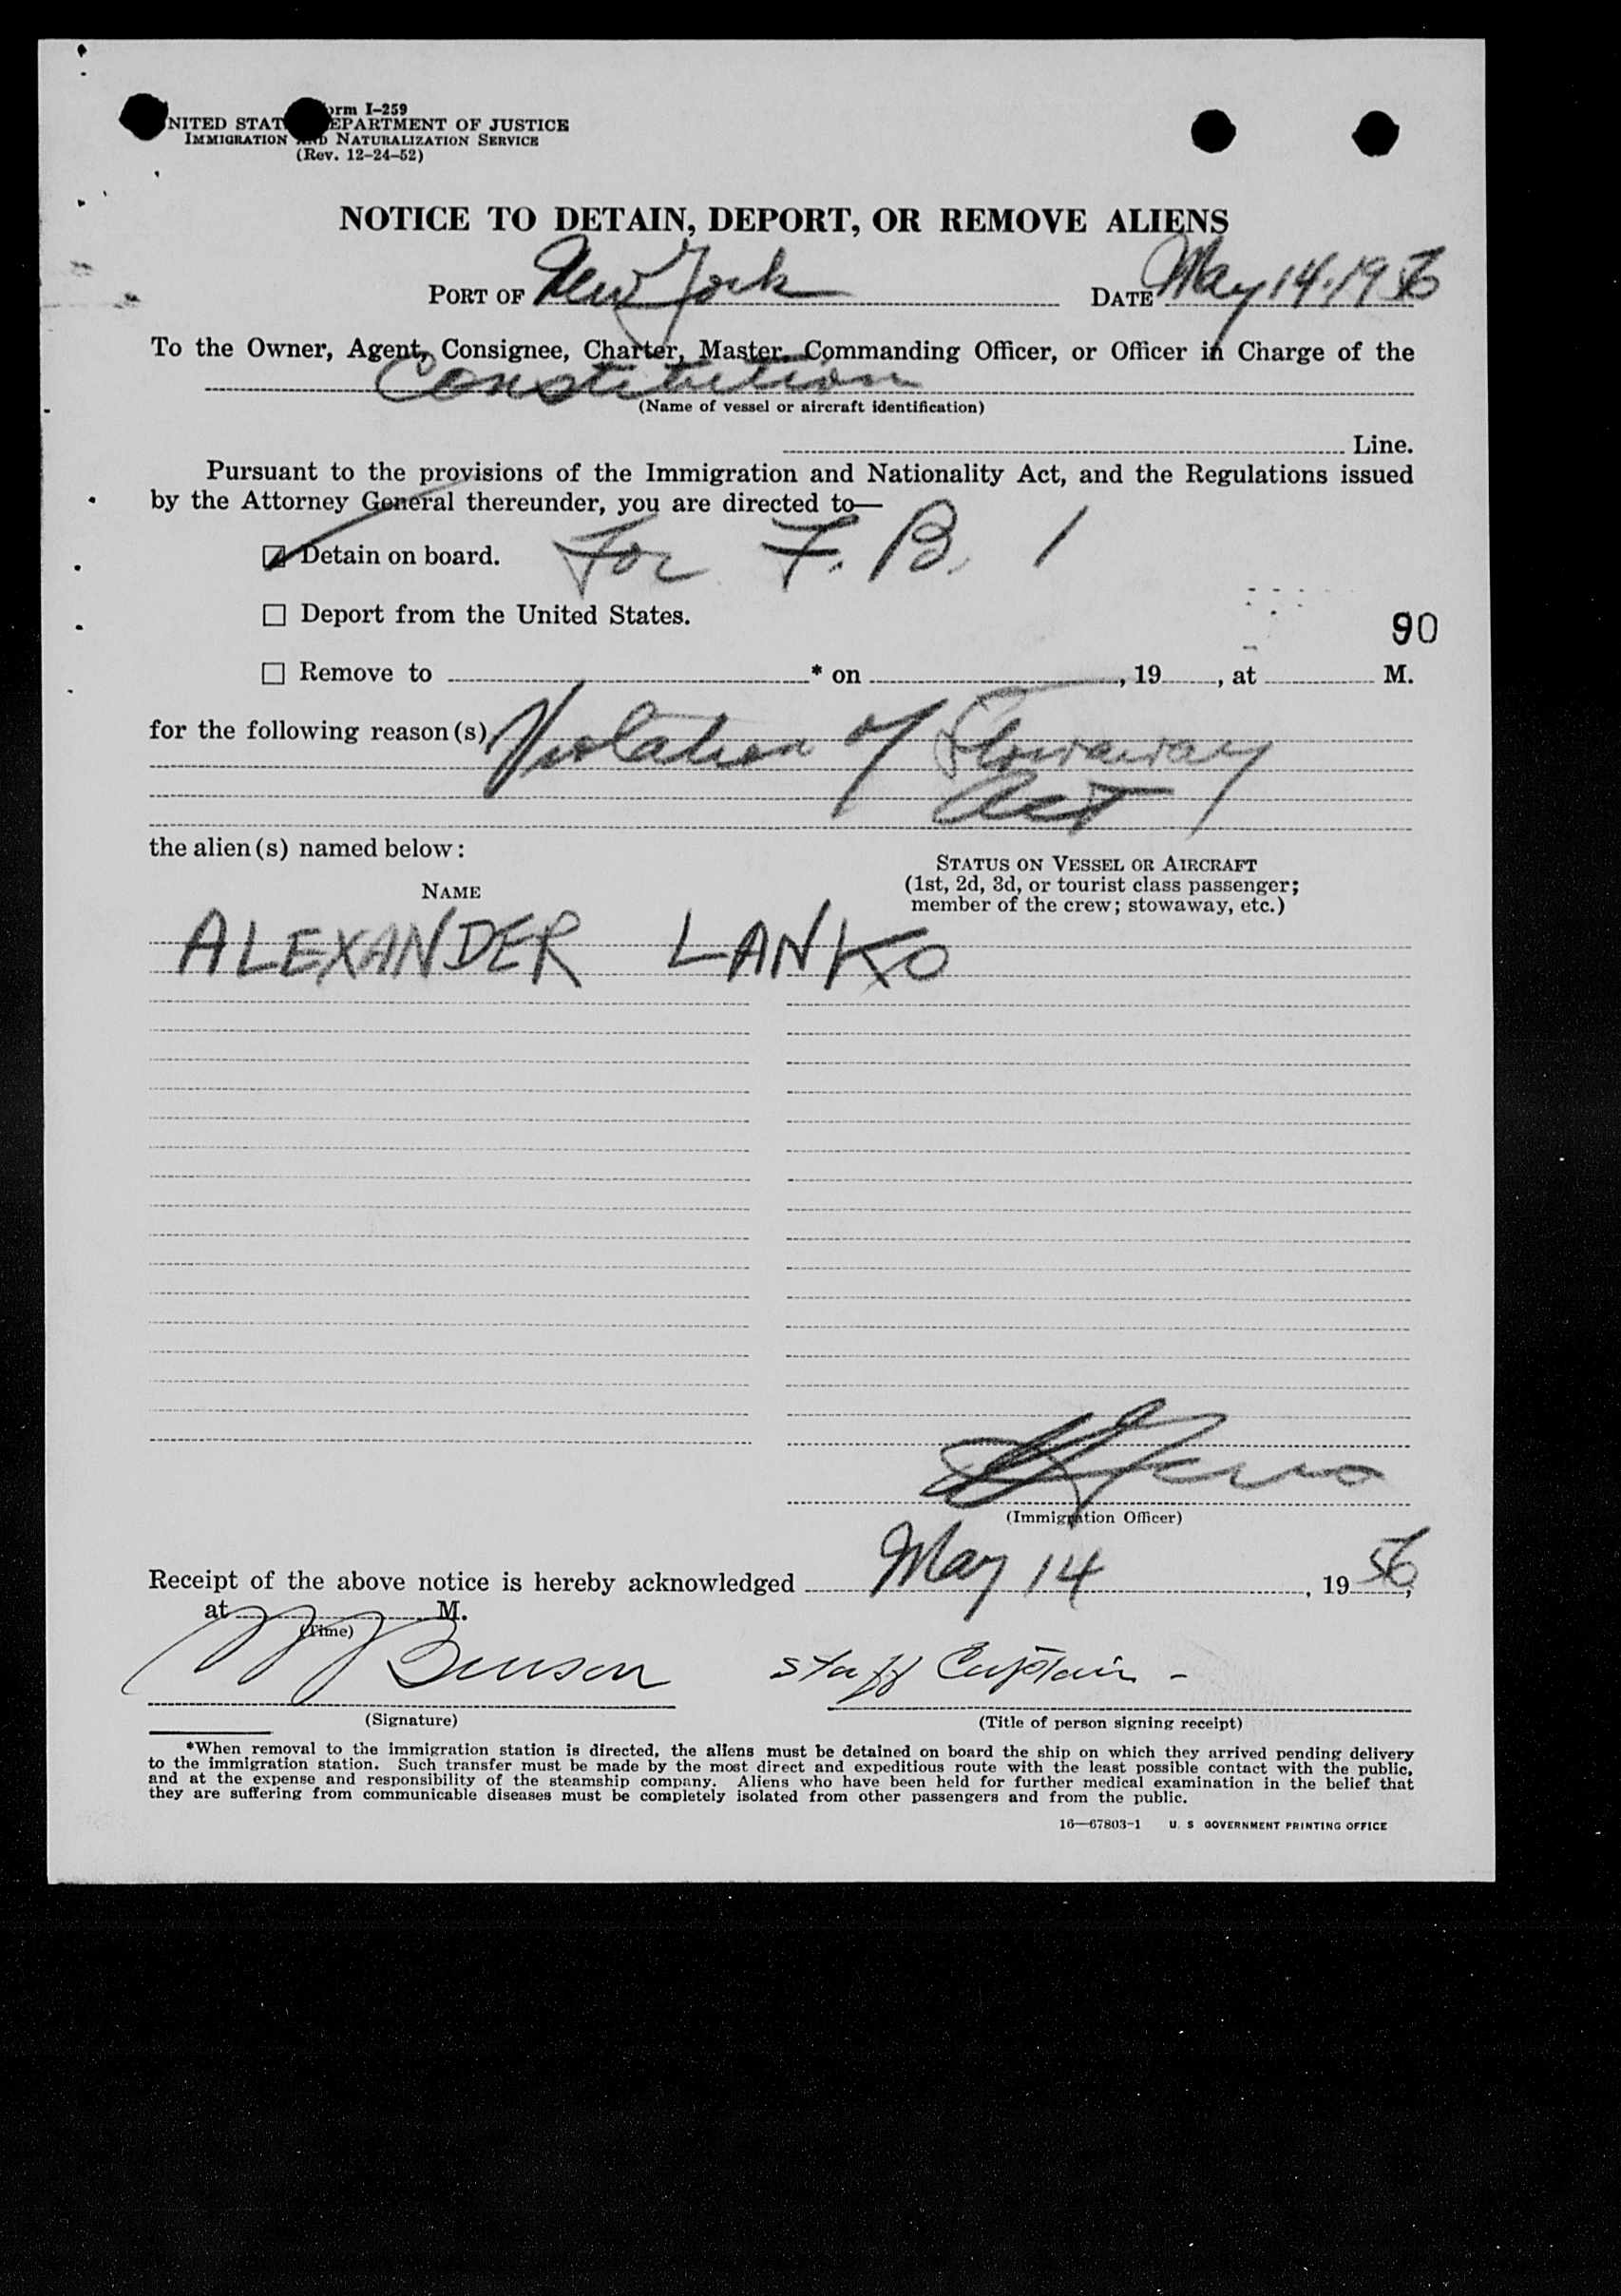 Form I-259
UNITED STATES DEPARTMENT OF JUSTICE
IMMIGRATION AND NATURALIZATION SERVICE
(Rev. 12-24-52)
NOTICE TO DETAIN, DEPORT, OR REMOVE ALIENS
PORT OF New York DATE May 14, 1956
To the Owner, Agent, Consignee, Charter, Master, Commanding Officer, or Officer in Charge of the
Constitution
(Name of vessel or aircraft identification)
Line.
Pursuant to the provisions of the Immigration and Nationality Act, and the Regulations issued
by the Attorney General thereunder, you are directed to—
Detain on board. For F. B. I
Deport from the United States.
90
Remove to * on , 19 , at M.
for the following reason(s) Violation of Stowaway
Act
the alien(s) named below:
STATUS ON VESSEL OR AIRCRAFT
NAME (1st, 2d, 3d, or tourist class passenger;
member of the crew; stowaway, etc.)
ALEXANDER LANKO
(Immigration Officer)
Receipt of the above notice is hereby acknowledged May 14, 1956,
at M.
(Time)
Benson staff Captain -
(Signature) (Title of person signing receipt)
*When removal to the immigration station is directed, the aliens must be detained on board the ship on which they arrived pending delivery
to the immigration station. Such transfer must be made by the most direct and expeditious route with the least possible contact with the public,
and at the expense and responsibility of the steamship company. Aliens who have been held for further medical examination in the belief that
they are suffering from communicable diseases must be completely isolated from other passengers and from the public.
16—67803-1 U. S GOVERNMENT PRINTING OFFICE